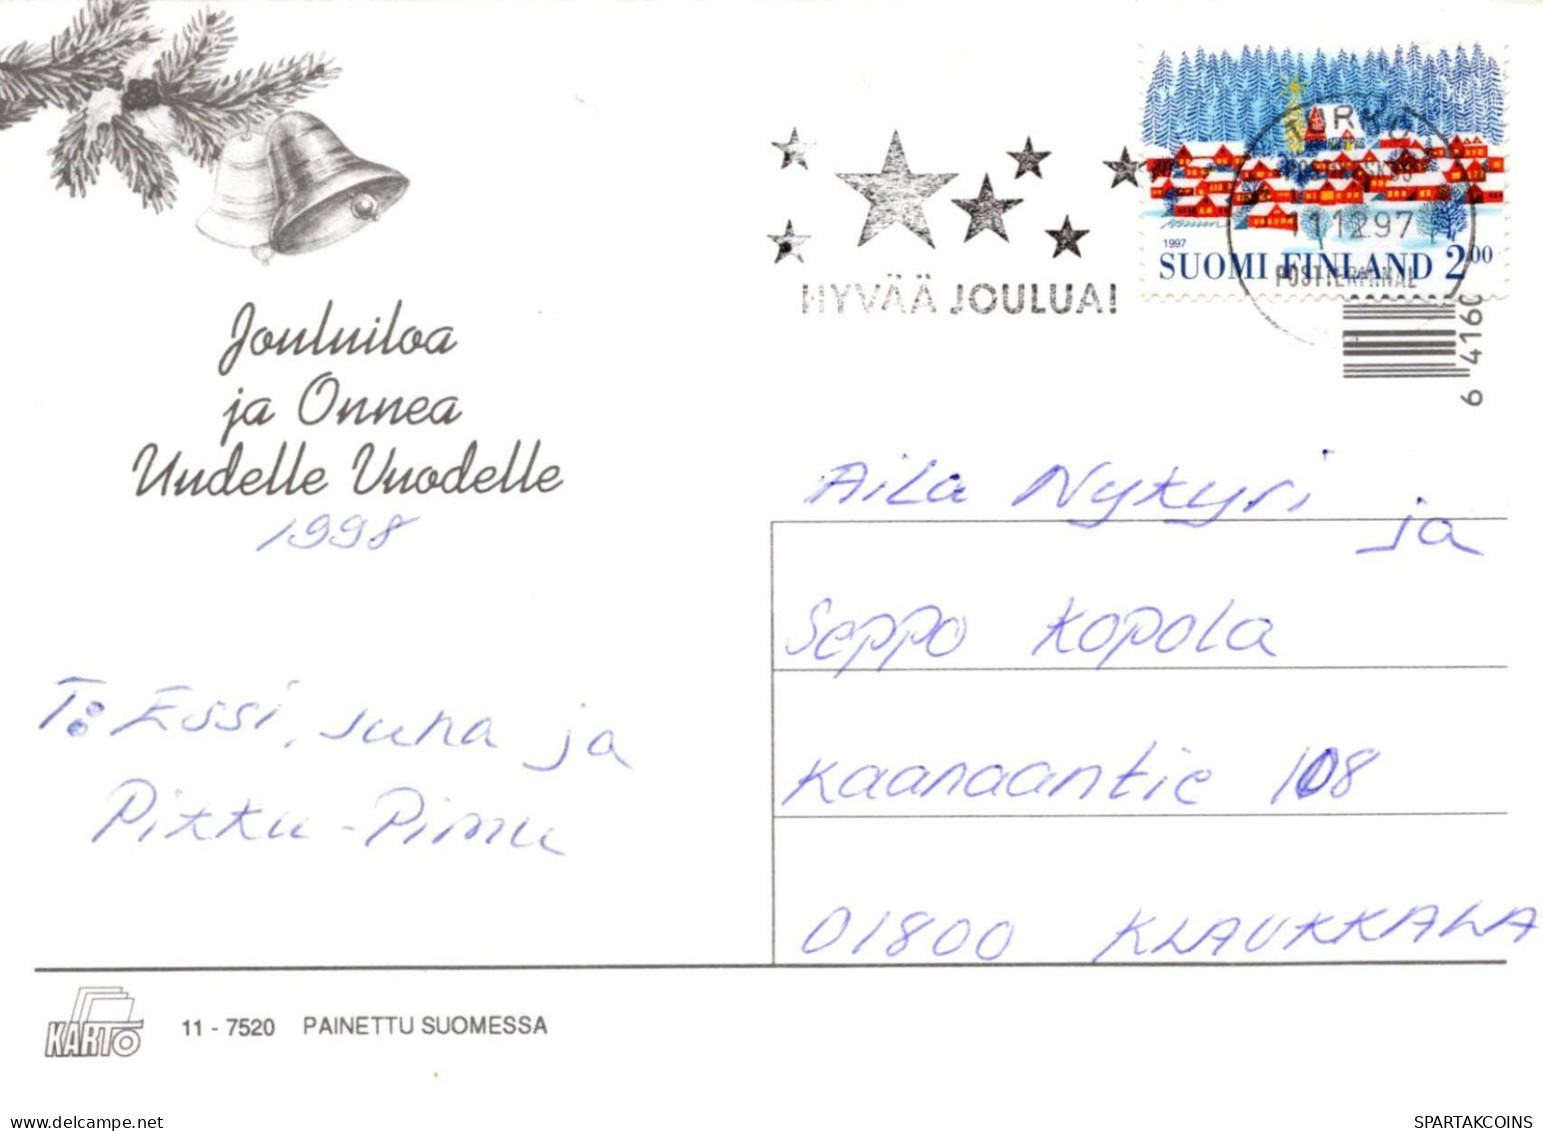 Jouluiloa
ja Onnea
Uudelle Vuodelle
1998
T: Essi, Juha ja
Pikku-Pimu
KARTO
11 - 7520 PAINETTU SUOMESSA
HYVÄÄ JOULUA!
TURKU
11.12.97
POSTITERMINAL
1997
SUOMI FINLAND 2.00
6 4160
Aila Nykyri ja
Seppo Kopola
Kaanaantie 108
01800 KLAUKKALA
SPARTAKCOINS